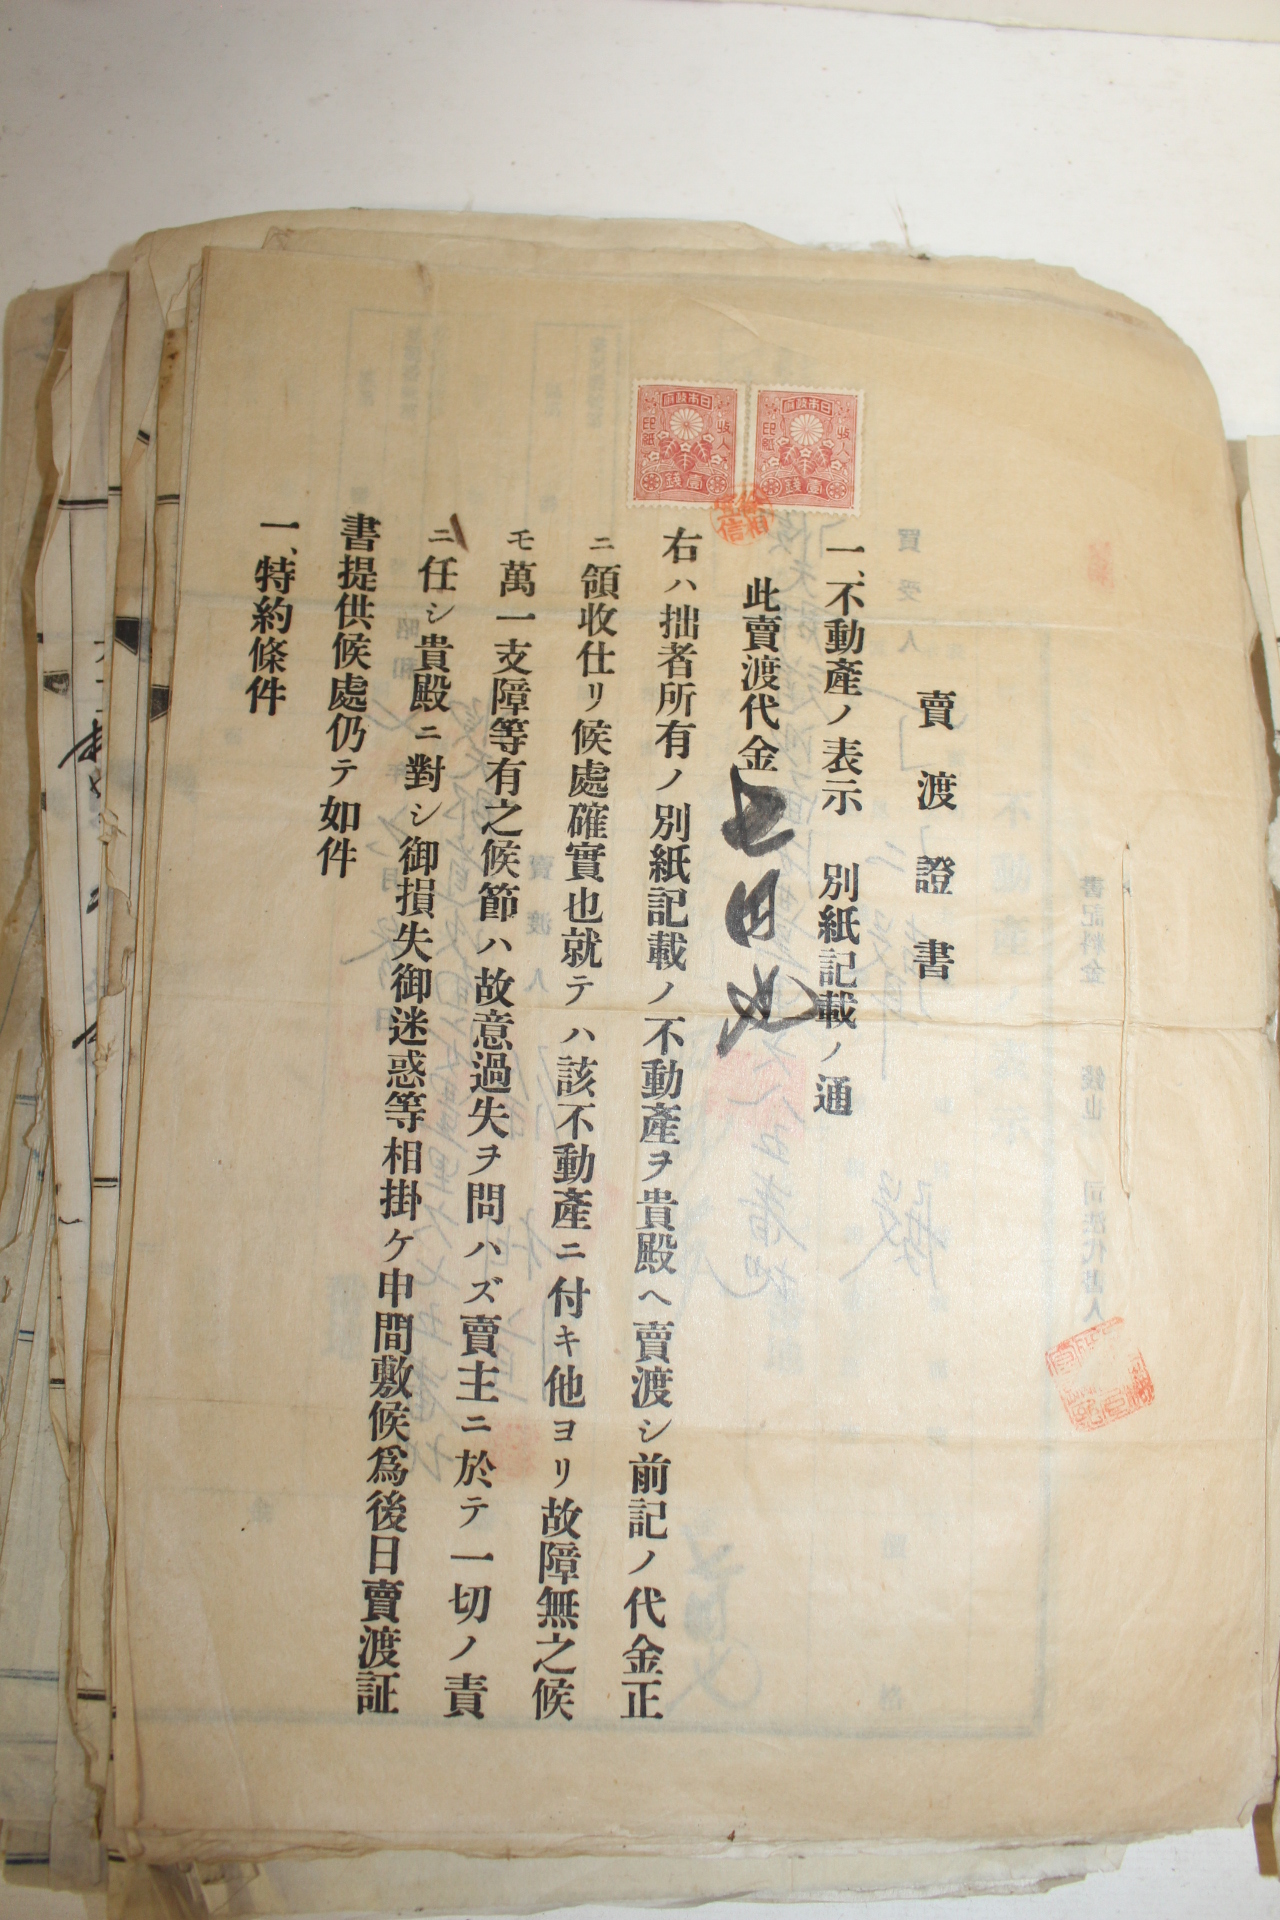 賣渡證書
一、不動產ノ表示　別紙記載ノ通
此賣渡代金
右ハ拙者所有ノ別紙記載ノ不動產ヲ貴殿ヘ賣渡シ前記ノ代金正
ニ領收仕リ候處確實也就テハ該不動產ニ付キ他ヨリ故障無之候
モ萬一支障等有之候節ハ故意過失ヲ問ハズ賣主ニ於テ一切ノ責
ニ任シ貴殿ニ對シ御損失御迷惑等相掛ケ申間敷候爲後日賣渡証
書提供候處仍テ如件
一、特約條件
日本政府
收入
印紙
壹錢
日本政府
收入
印紙
壹錢